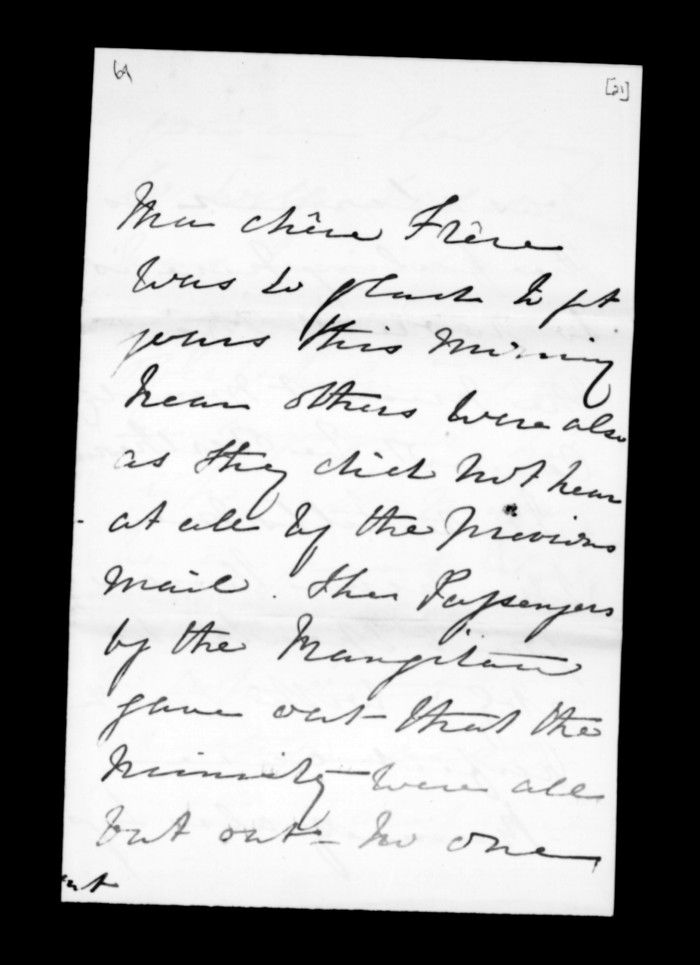 69
[21]
Mon chère Frère
Was so glad to get
yours this morning
hear others were also
as they did not hear
at all by the previous
mail. The Passengers
by the Rangitane
gave out that the
Ministry were all
but out - No one